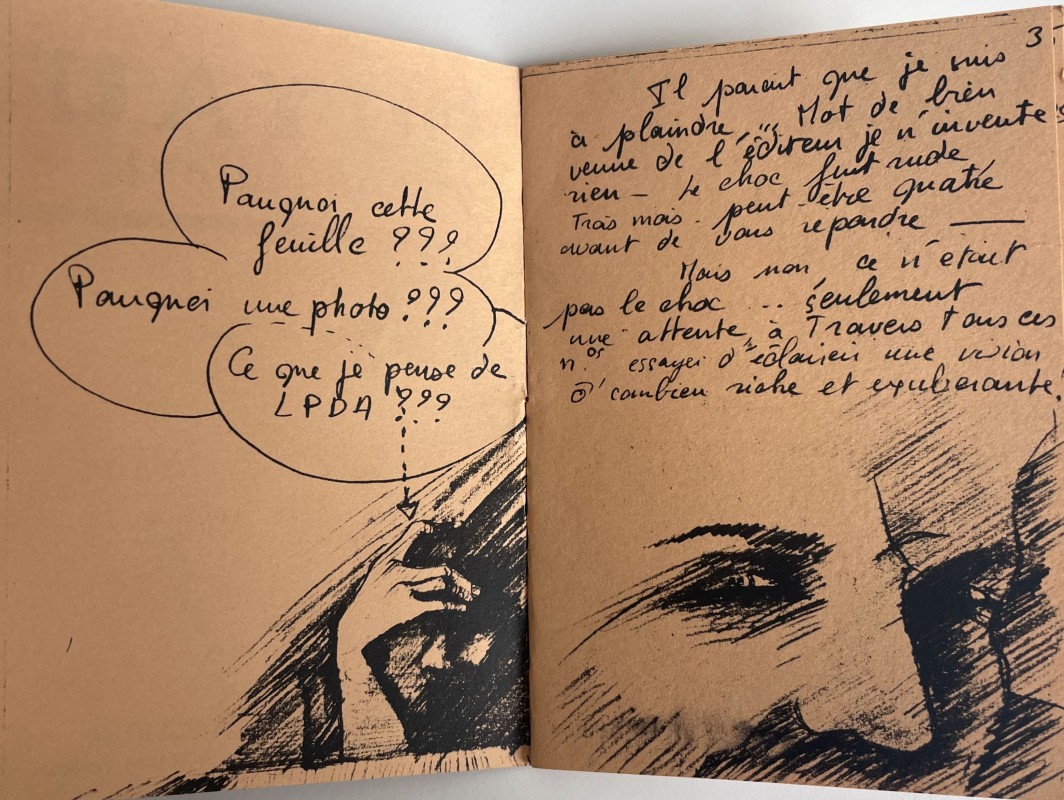 Pourquoi cette
feuille ???
Pourquoi une photo ???
Ce que je pense de
LPDA ???
3
Il parait que je suis
à plaindre ... Mot de bien
venue de l'éditeur je n'invente
rien - Le choc fut rude
Trois mois - peut-être quatre
avant de vous repondre
Mais non, ce n'était
pas le choc ... seulement
une attente, à Travers Tous ces
n.os essayer d'éclaircir une vision
ô combien riche et exuberante!